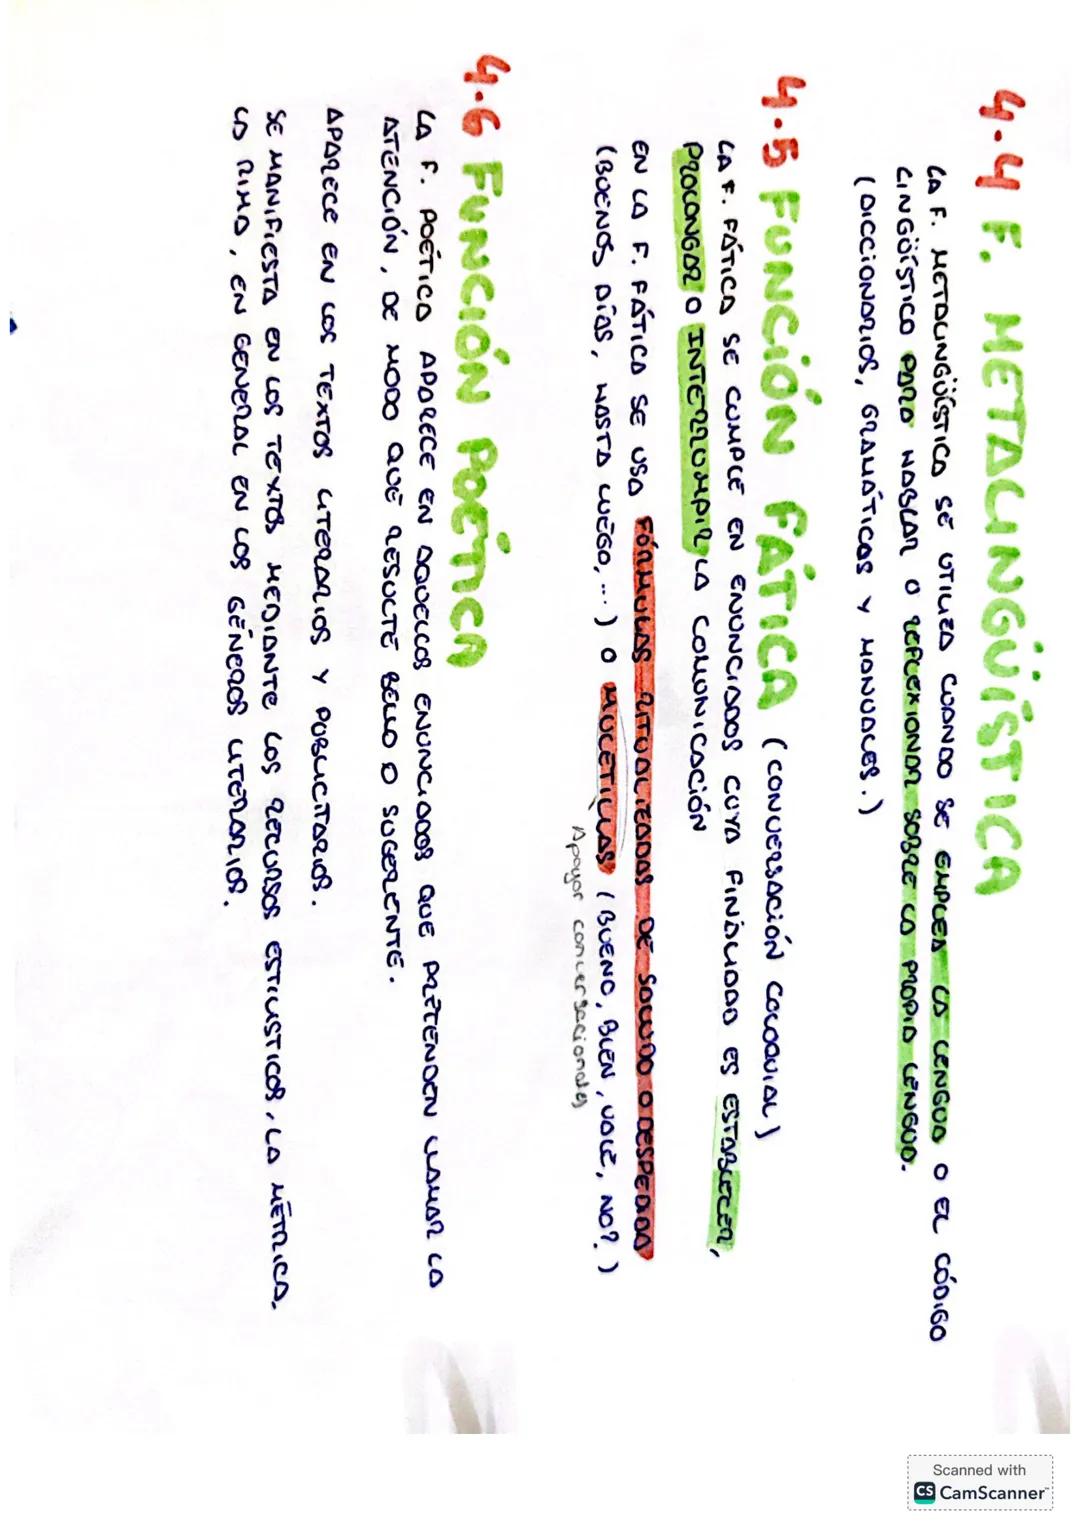 4.4 F. METALINGÜÍSTICA
LA F. METALINGÜÍSTICA SE UTILIZA CUANDO SE EMPLEA LA LENGUA O EL CÓDIGO
LINGÜÍSTICO PARA HABLAR O REFLEXIONAR SOBRE LA PROPIA LENGUA.
(DICCIONARIOS, GRAMÁTICAS Y MANUALES.)
4.5 FUNCIÓN FÁTICA (CONVERSACIÓN COLOQUIAL)
LA F. FÁTICA SE CUMPLE EN ENUNCIADOS CUYA FINALIDAD ES ESTABLECER,
PROLONGAR O INTERRUMPIR LA COMUNICACIÓN
EN LA F. FÁTICA SE USA FÓRMULAS RITUALIZADAS DE SALUDO O DESPEDIDA
(BUENOS DÍAS, HASTA LUEGO, ...) O MULETILLAS (BUENO, BIEN, VALE, NO?.)
Apoyar conversacionales
4.6 FUNCIÓN POÉTICA
LA F. POÉTICA APARECE EN AQUELLOS ENUNCIADOS QUE PRETENDEN LLAMAR LA
ATENCIÓN, DE MODO QUE RESULTE BELLO O SUGERENTE.
APARECE EN LOS TEXTOS LITERARIOS Y PUBLICITARIOS.
SE MANIFIESTA EN LOS TEXTOS MEDIANTE LOS RECURSOS ESTILISTICOS, LA MÉTRICA,
LA RIMA, EN GENERAL EN LOS GÉNEROS LITERARIOS.
Scanned with
CS CamScanner